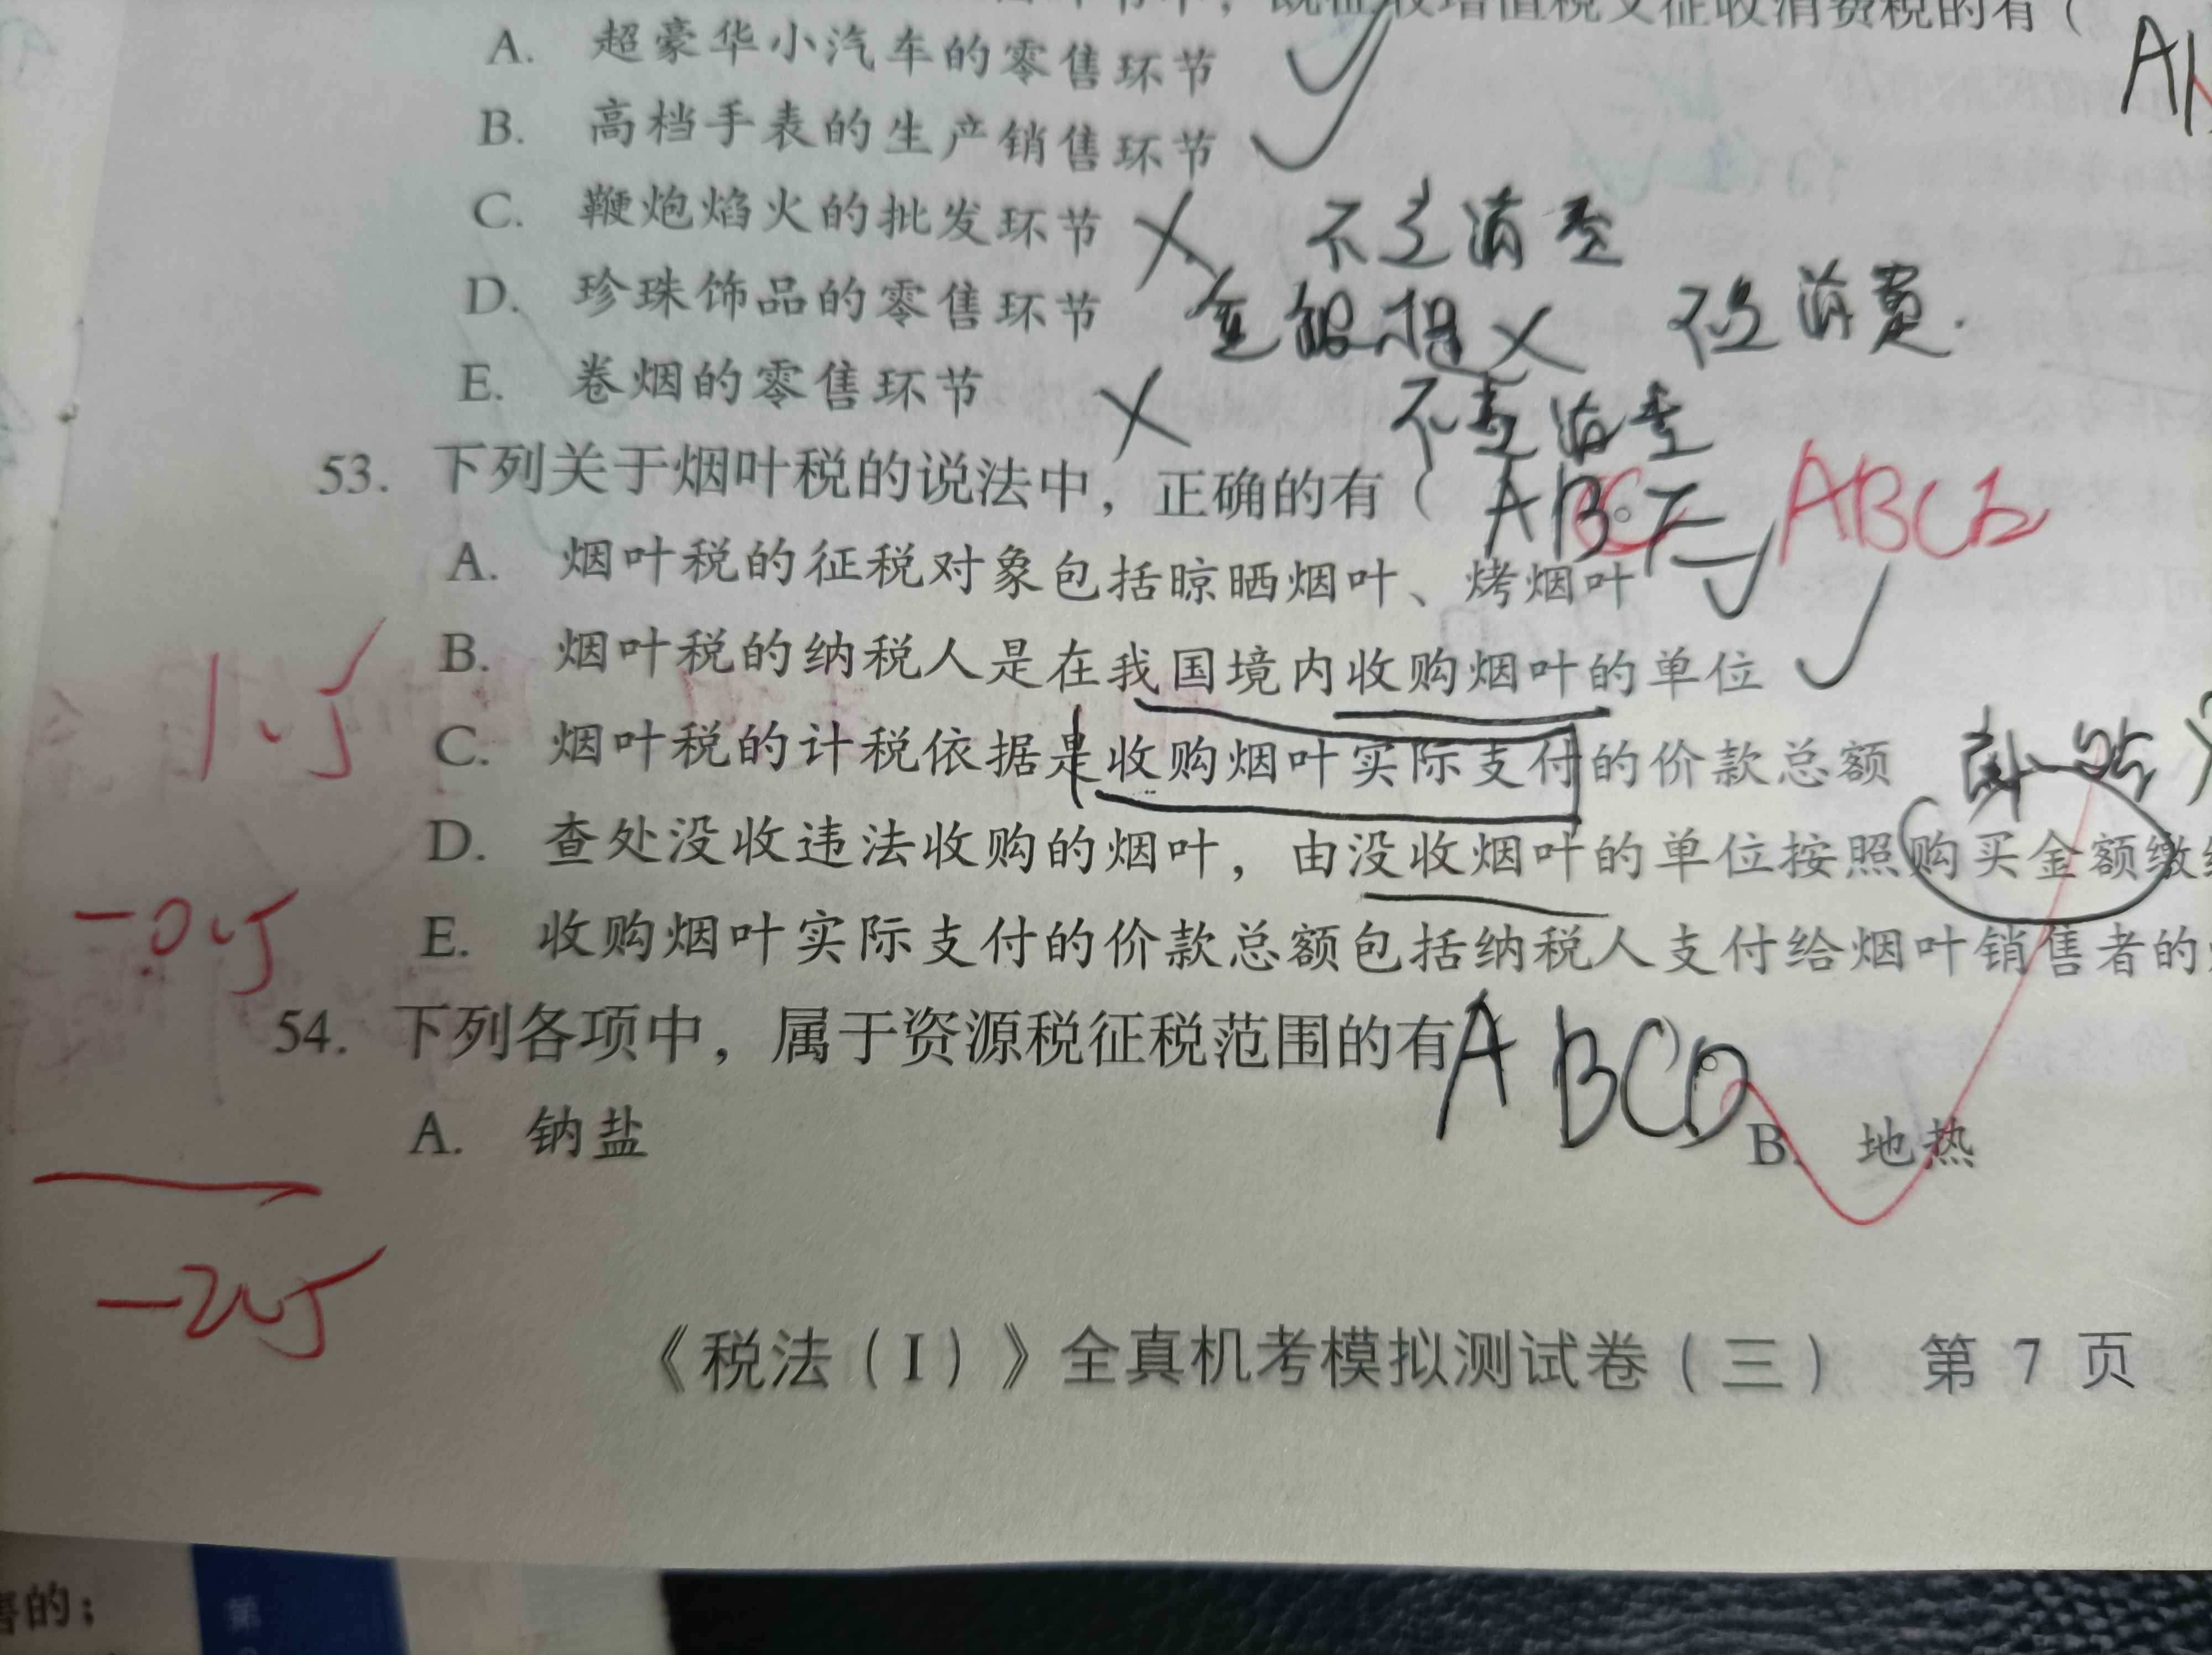 既征收增值税又征收消费税的有（
A. 超豪华小汽车的零售环节
B. 高档手表的生产销售环节
C. 鞭炮焰火的批发环节 不交消费
D. 珍珠饰品的零售环节 金银铂 不交消费.
E. 卷烟的零售环节 不交消费
53. 下列关于烟叶税的说法中，正确的有（ ABE ABCE
A. 烟叶税的征税对象包括晾晒烟叶、烤烟叶
B. 烟叶税的纳税人是在我国境内收购烟叶的单位
C. 烟叶税的计税依据是收购烟叶实际支付的价款总额
D. 查处没收违法收购的烟叶，由没收烟叶的单位按照购买金额缴
E. 收购烟叶实际支付的价款总额包括纳税人支付给烟叶销售者的
54. 下列各项中，属于资源税征税范围的有 ABCD
A. 钠盐 B. 地热
《税法（I）》全真机考模拟测试卷（三） 第 7 页
售的；
第